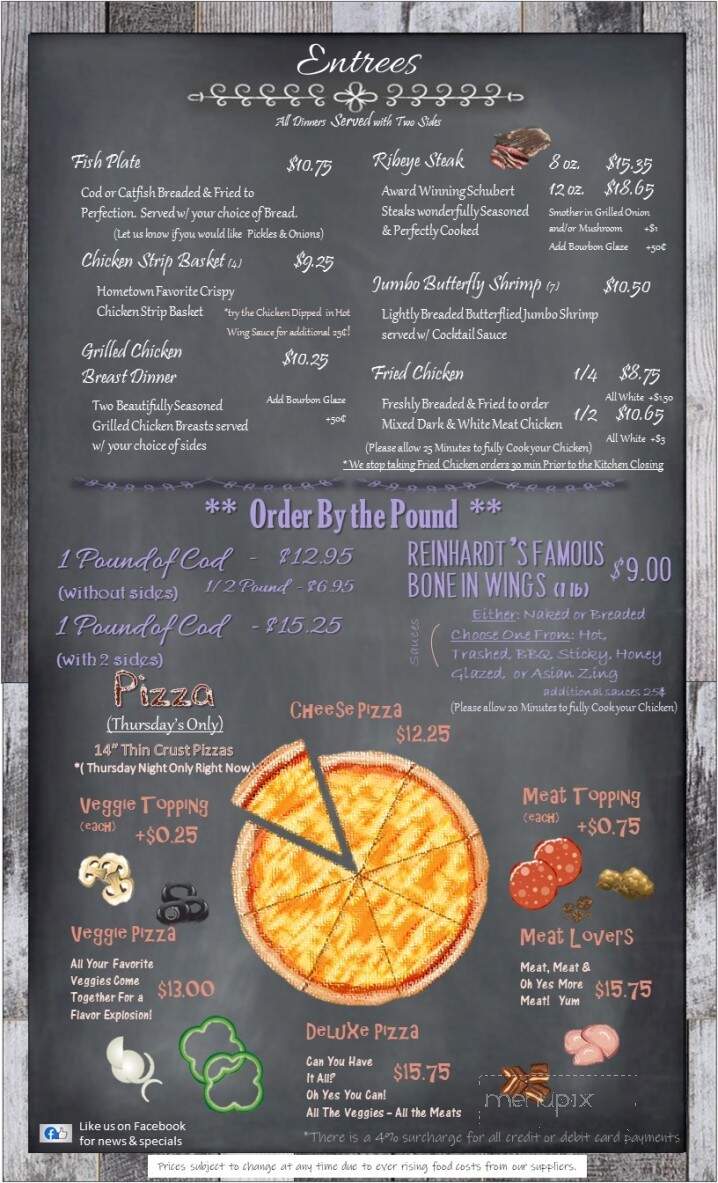 Entrees
All Dinners Served with Two Sides
Fish Plate $10.75
Cod or Catfish Breaded & Fried to
Perfection. Served w/ your choice of Bread.
(Let us know if you would like Pickles & Onions)
Chicken Strip Basket (4) $9.25
Hometown Favorite Crispy
Chicken Strip Basket *try the Chicken Dipped in Hot
Wing Sauce for additional 25¢!
Grilled Chicken
Breast Dinner $10.25
Two Beautifully Seasoned
Grilled Chicken Breasts served
w/ your choice of sides
Add Bourbon Glaze
+50¢
Ribeye Steak 8 oz. $15.35
12 oz. $18.65
Award Winning Schubert
Steaks wonderfully Seasoned
& Perfectly Cooked
Smother in Grilled Onion
and/or Mushroom +$1
Add Bourbon Glaze +50¢
Jumbo Butterfly Shrimp (7) $10.50
Lightly Breaded Butterflied Jumbo Shrimp
served w/ Cocktail Sauce
Fried Chicken 1/4 $8.75
All White +$1.50
Freshly Breaded & Fried to order
Mixed Dark & White Meat Chicken
1/2 $10.65
All White +$3
(Please allow 25 Minutes to fully Cook your Chicken)
*We stop taking Fried Chicken orders 30 min Prior to the Kitchen Closing
** Order By the Pound **
1 Pound of Cod - $12.95
(without sides) 1/2 Pound - $6.95
1 Pound of Cod - $15.25
(with 2 sides)
REINHARDT'S FAMOUS
BONE IN WINGS (1 lb) $9.00
Sauces
Either: Naked or Breaded
Choose One From: Hot,
Trashed, BBQ, Sticky, Honey
Glazed, or Asian Zing
additional sauces 25¢
(Please allow 20 Minutes to fully Cook your Chicken)
Pizza
(Thursday's Only)
14" Thin Crust Pizzas
*( Thursday Night Only Right Now)
Cheese Pizza
$12.25
Veggie Topping
(each) +$0.25
Meat Topping
(each) +$0.75
Veggie Pizza
All Your Favorite
Veggies Come
Together For a
Flavor Explosion!
$13.00
Meat Lovers
Meat, Meat &
Oh Yes More
Meat! Yum
$15.75
Deluxe Pizza
Can You Have
It All?
Oh Yes You Can!
All The Veggies – All the Meats
$15.75
menupix
Like us on Facebook
for news & specials
*There is a 4% surcharge for all credit or debit card payments
Prices subject to change at any time due to ever rising food costs from our suppliers.